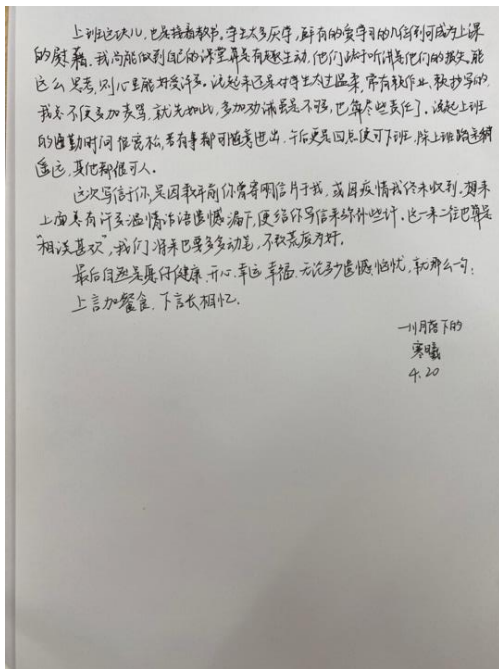 上班这块儿，也是接着教书。学生太多厌学，鲜有的爱学习的几位到可成为上课
的慰藉。我尚能做到自己的课堂算是有趣生动，他们疏于听讲是他们的损失，能
这么思考，则心里能好受许多。说起来还是对学生太过温柔，常有缺作业、缺抄写的，
我总不便多加责骂，就先如此，多加劝诫虽是不够，也算尽些责任了。说起上班
的通勤时间 但宽松，若有事都可随意进出，午后更是四点便可下班，除上班路途稍
遥远，其他都很可人。
这次写信于你，是因数年前你曾寄明信片于我，或因疫情我终未收到。想来
上面具有许多温情话语遗憾漏下，便给你写信来弥补些许。这一来二往也算是
“相谈甚欢”，我们将来也要多多动笔，不致荒废为好。
最后自然是愿你健康、开心、幸运、幸福，无论多少遗憾恼忧，就那么一句：
上言加餐食，下言长相忆。
一川月落下的
寒曦
4.20